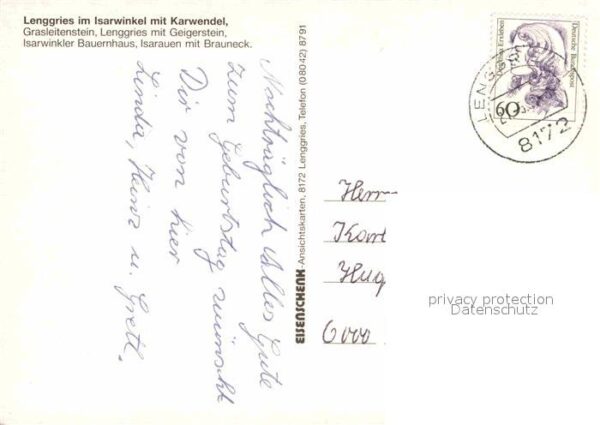 Lenggries im Isarwinkel mit Karwendel,
Grasleitenstein, Lenggries mit Geigerstein,
Isarwinkler Bauernhaus, Isarauen mit Brauneck.
Nachträglich alles Gute
zum Geburtstag wünscht
Dir von hier
Linda, Heinz u. Gretl.
EISENSCHENK-Ansichtskarten, 8172 Lenggries, Telefon (08042) 8791
Dorothea Erxleben
Deutsche Bundespost
60
LENGG
8172
Herrn
Kort
Hug
6000
privacy protection
Datenschutz